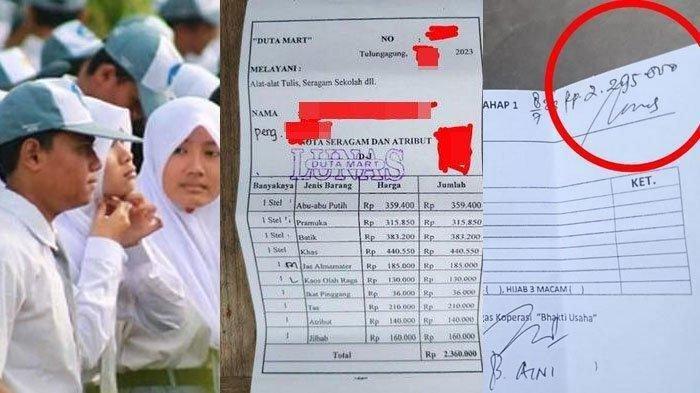 "DUTA MART"
NO :
Tulungagung, 2023
MELAYANI :
Alat-alat Tulis, Seragam Sekolah dll.
NAMA
peng.
NOTA SERAGAM DAN ATRIBUT
LUNAS
DUTA MART
Banyakaya Jenis Barang Harga Jumlah
1 Stel Abu-abu Putih Rp 359.400 Rp 359.400
1 Stel Pramuka Rp 315.850 Rp 315.850
1 Stel Batik Rp 383.200 Rp 383.200
1 Stel Khas Rp 440.550 Rp 440.550
1 m Jas Almamater Rp 185.000 Rp 185.000
1 L Kaos Olah Raga Rp 130.000 Rp 130.000
1 Ikat Pinggang Rp 36.000 Rp 36.000
1 Tas Rp 210.000 Rp 210.000
1 Atribut Rp 140.000 Rp 140.000
1 Jilbab Rp 160.000 Rp 160.000
Total Rp 2.360.000
AHAP 1
Rp 2.295.000
KET.
( ), HIJAB 3 MACAM ( )
gas Koperasi "Bhakti Usaha"
B. AINI )